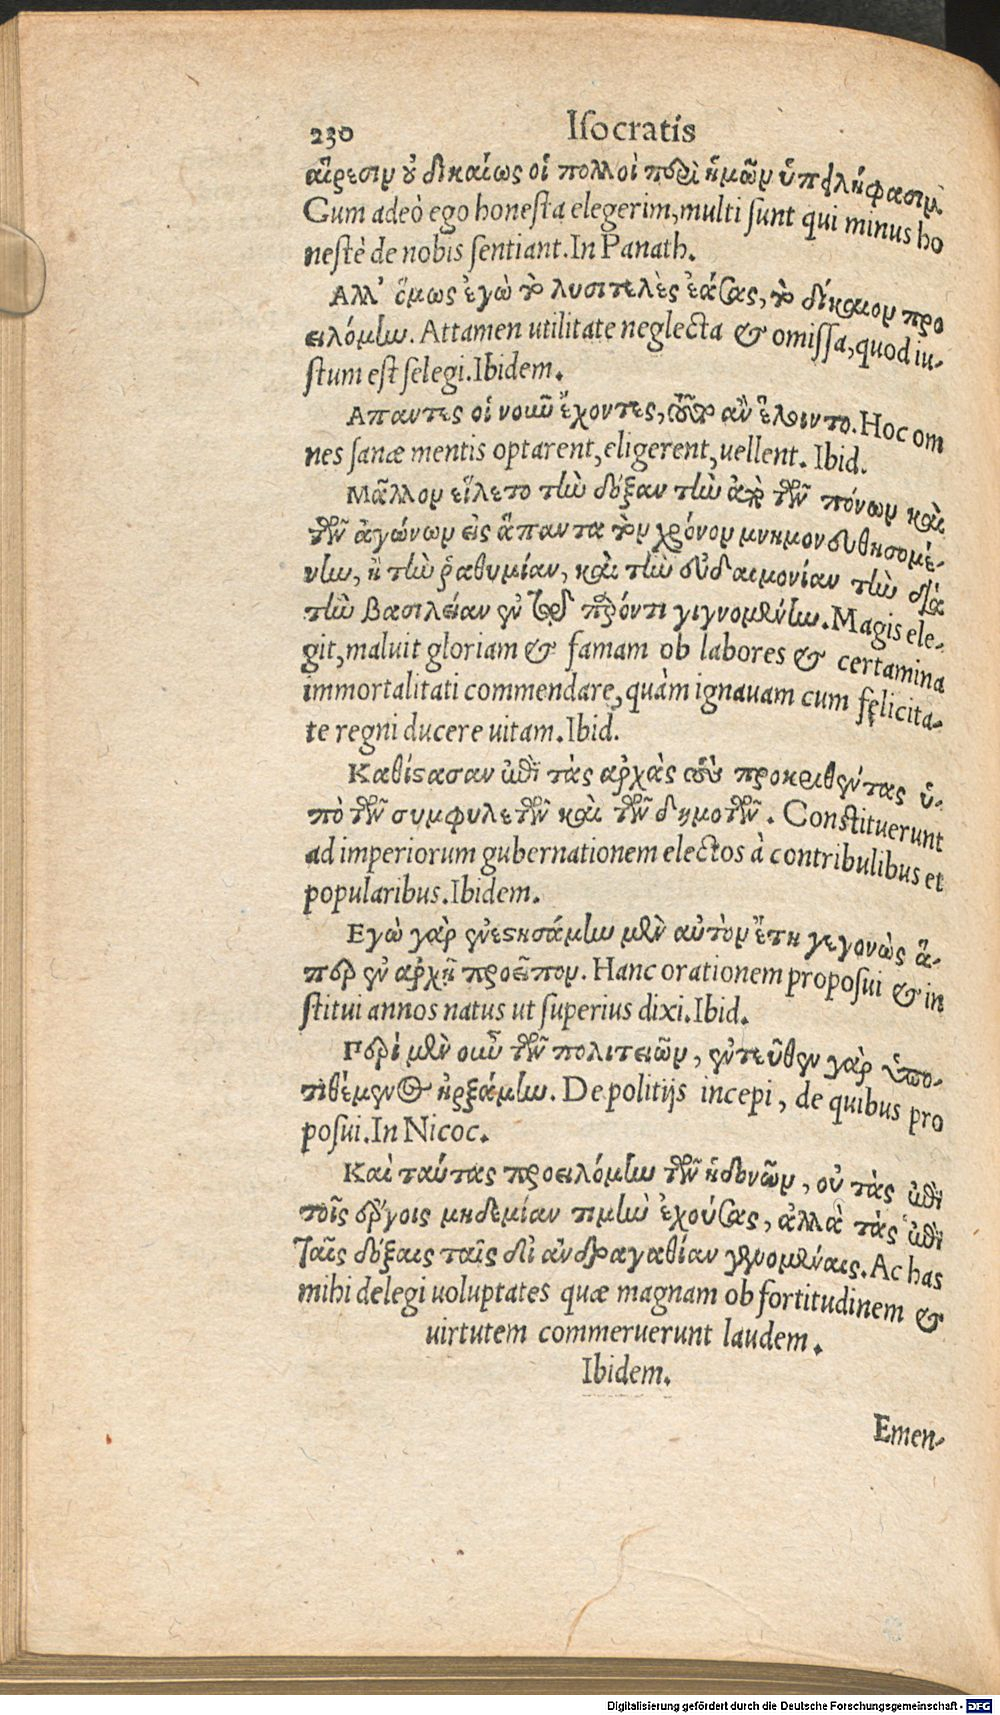 230 Iſocratis
αἵρεσιν οὐ δικαίως οἱ πολλοὶ περὶ ἡμῶν ὑπειλήφασιν.
Cum adeò ego honeſta elegerim, multi ſunt qui minus ho
neſtè de nobis ſentiant. In Panath.
Αλλ' ὅμως ἐγὼ τὸ λυσιτελὲς ἐάσας, τὸ δίκαιον προ
ειλόμην. Attamen utilitate neglecta & omiſſa, quod iu-
ſtum eſt ſelegi. Ibidem.
Απαντες οἱ νοῦν ἔχοντες, τοῦτο ἂν ἕλοιντο. Hoc om
nes ſanæ mentis optarent, eligerent, uellent. Ibid.
Μᾶλλον εἵλετο τὴν δόξαν τὴν ἀπὸ τῶν πόνων καὶ
τῶν ἀγώνων εἰς ἅπαντα τὸν χρόνον μνημονευθησομέ-
νην, ἢ τὴν ῥαθυμίαν, καὶ τὴν εὐδαιμονίαν τὴν διὰ
τὴν βασιλείαν ἐν τῷ παρόντι γιγνομένην. Magis ele-
git, maluit gloriam & famam ob labores & certamina
immortalitati commendare, quàm ignauam cum felicita-
te regni ducere uitam. Ibid.
Καθίστασαν ἐπὶ τὰς ἀρχὰς τοὺς προκριθέντας ὑ-
πὸ τῶν συμφυλετῶν καὶ τῶν δημοτῶν. Conſtituerunt
ad imperiorum gubernationem electos à contribulibus et
popularibus. Ibidem.
Εγὼ γὰρ ἐνεστησάμην μὲν αὐτὸν ἔτη γεγονὼς ἅ-
περ ἐν ἀρχῇ προεῖπον. Hanc orationem propoſui & in
ſtitui annos natus ut ſuperius dixi. Ibid.
Περὶ μὲν οὖν τῶν πολιτειῶν, ἐντεῦθεν γὰρ ὑπο-
τιθέμενος ἠρξάμην. De politijs incepi, de quibus pro
poſui. In Nicoc.
Καὶ ταύτας προειλόμην τῶν ἡδονῶν, οὐ τὰς ἐπὶ
τοῖς ἔργοις μηδεμίαν τιμὴν ἐχούσας, ἀλλὰ τὰς ἐπὶ
ταῖς δόξαις ταῖς δι' ἀνδραγαθίαν γιγνομέναις. Ac has
mihi delegi uoluptates quæ magnam ob fortitudinem &
uirtutem commeruerunt laudem.
Ibidem.
Emen-
Digitalisierung gefördert durch die Deutsche Forschungsgemeinschaft - DFG